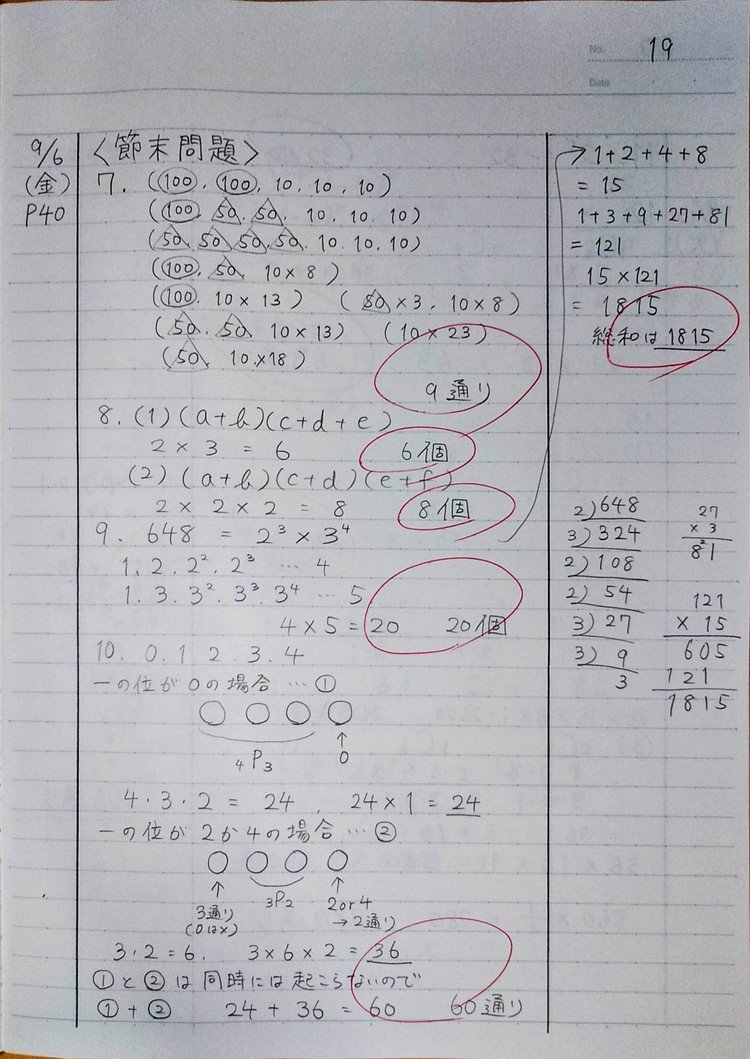 No. 19
Date
9/6
(金)
P40
〈節末問題〉
7. (100, 100, 10, 10, 10)
(100, 50, 50, 10, 10, 10)
(50, 50, 50, 50, 10, 10, 10)
(100, 50, 10×8)
(100, 10×13) (50×3, 10×8)
(50, 50, 10×13) (10×23)
(50, 10×18)
9通り
8. (1) (a+b)(c+d+e)
2×3=6 6個
(2) (a+b)(c+d)(e+f)
2×2×2=8 8個
9. 648 = 2³×3⁴
1, 2, 2², 2³ … 4
1, 3, 3², 3³, 3⁴ … 5
4×5=20 20個
10. 0, 1, 2, 3, 4
一の位が0の場合…①
○ ○ ○ ○
₄P₃ ↑
0
4・3・2 = 24, 24×1=24
一の位が2か4の場合…②
○ ○ ○ ○
↑ ₃P₂ ↑
3通り 2or4
(0は×) →2通り
3・2=6, 3×6×2=36
①と②は同時には起こらないので
①+② 24+36=60 60通り
→1+2+4+8
=15
1+3+9+27+81
=121
15×121
=1815
総和は1815
2)648
3)324
2)108
2)54
3)27
3)9
3
27
×3
8²1
121
×15
605
121
1815